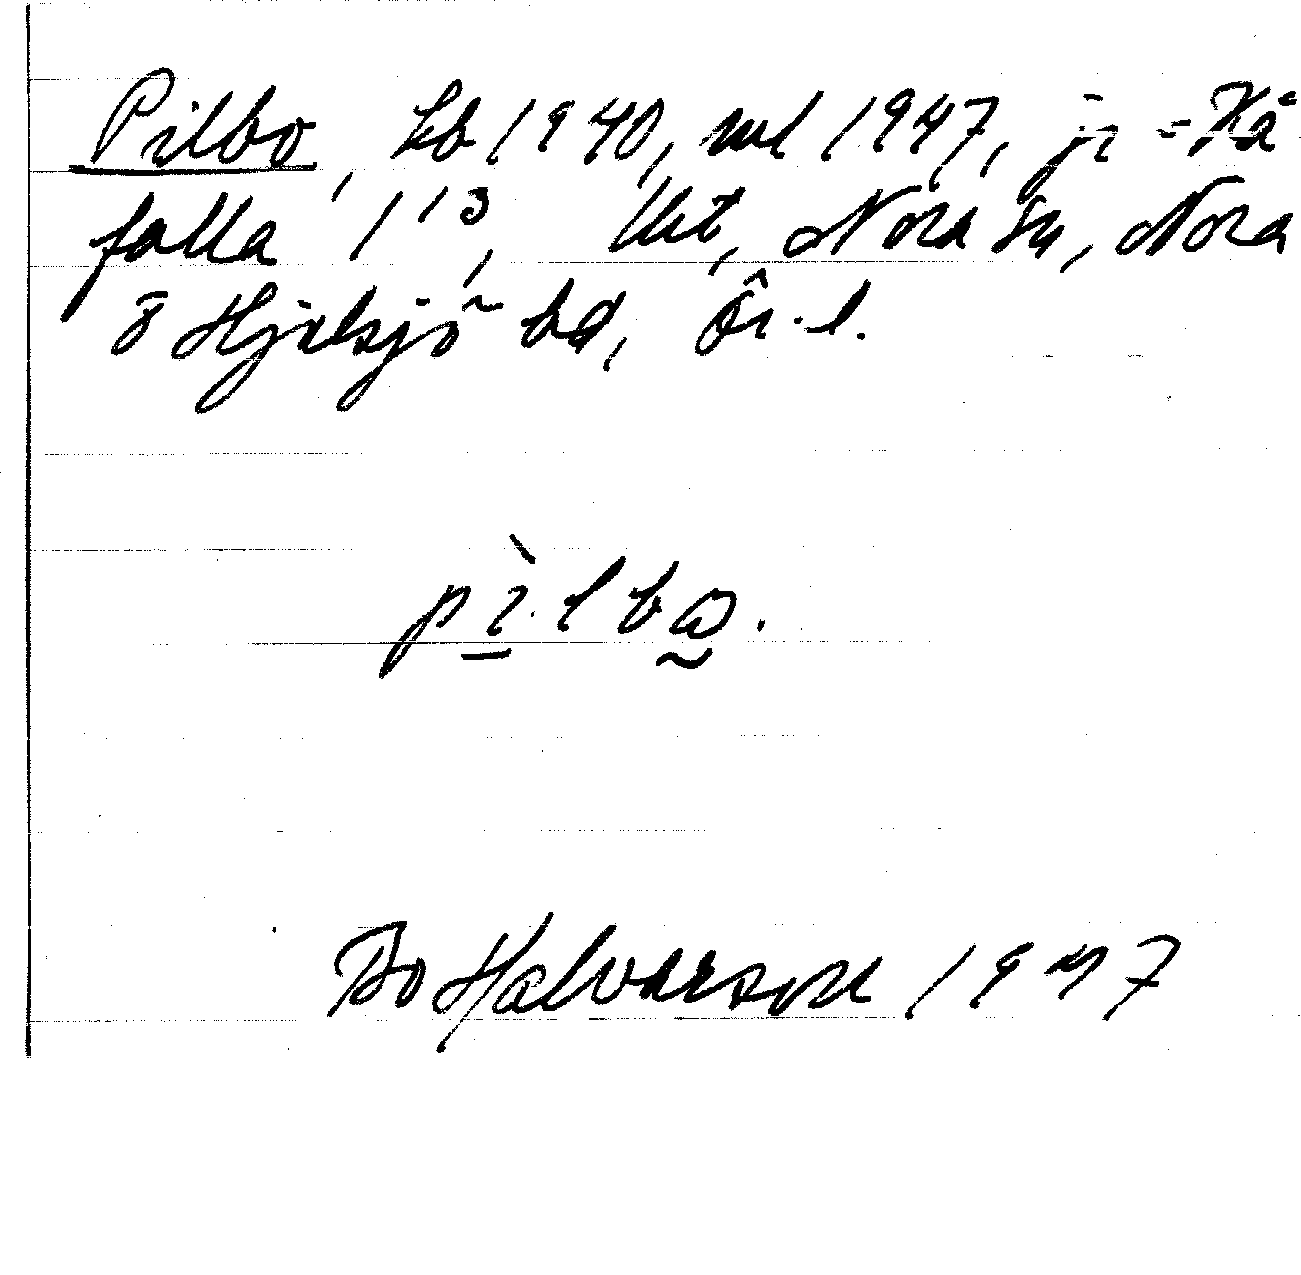 Pilbo, kb 1940, ml 1947, jr = Kå
falla 1¹³, lht, Nora sn, Nora
o Hjulsjö bd, Ör. l.
pi·lbω.
Bo Halvarson 1947